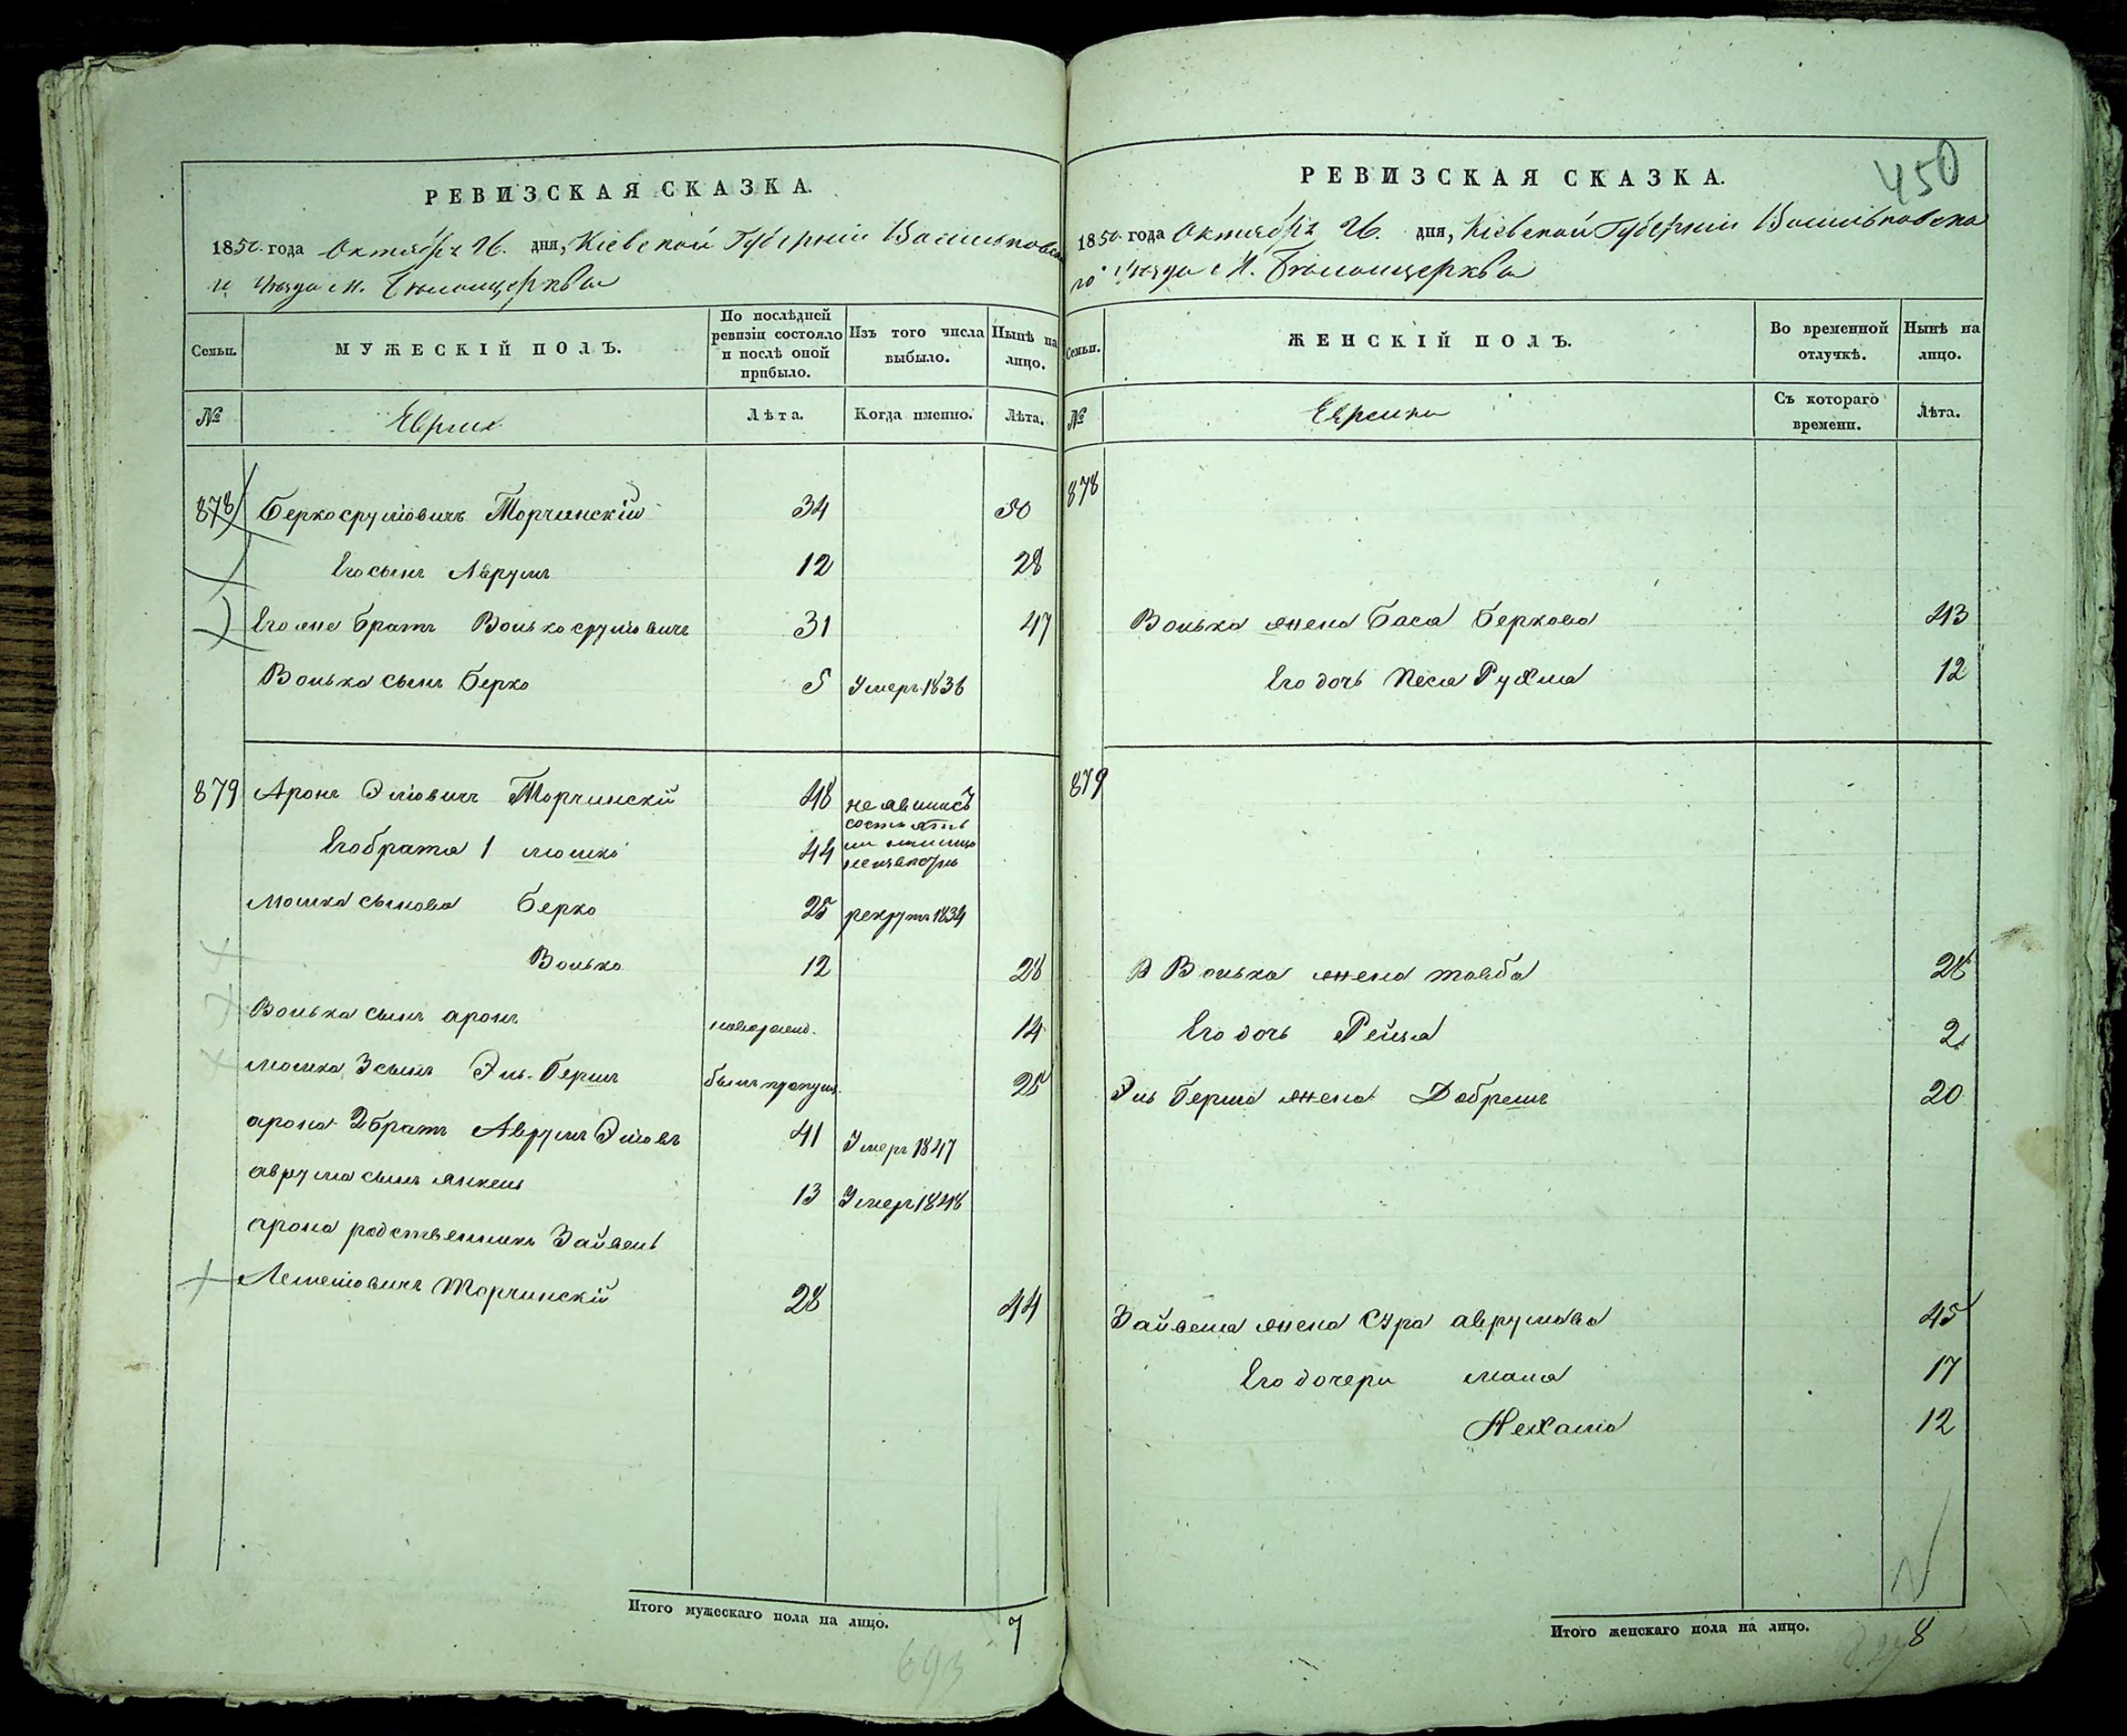 РЕВИЗСКАЯ СКАЗКА.
1850 года Октября 26. дня, Кіевской Губерніи Васильковска
го Уѣзда М. Бѣлоцеркви
Семьи.
МУЖЕСКІЙ ПОЛЪ.
По послѣдней ревизіи состояло и послѣ оной прибыло.
Изъ того числа выбыло.
Нынѣ на лицо.
№
Евреи
Лѣта.
Когда именно.
Лѣта.
878 Берко Срулiовичъ Торчинскій 34 50
Его сынъ Аврумъ 12 28
Его же братъ Волько Срулiовичъ 31 47
Волька сынъ Берко 5 Умеръ 1836
879 Аронъ Элiовичъ Торчинскій 48 не явились
состоятъ
Его брата 1 мошко 44
мошка сынова Берко 25 рекрутъ 1834
Волько 12 28
Волька сынъ аронъ новорожд. 14
мошка 3 сынъ Эль-Гершъ былъ пропущ. 25
арона 2 братъ Аврумъ Элiовъ 41 Умеръ 1847
аврума сынъ янкель 13 Умеръ 1848
арона родственникъ Зайвель
Лемелiовичъ Торчинскій 28 44
Итого мужескаго пола на лицо. 7
693
450
РЕВИЗСКАЯ СКАЗКА.
1850 года Октября 26. дня, Кіевской Губерніи Васильковска
го Уѣзда М. Бѣлоцеркви
Семьи.
ЖЕНСКІЙ ПОЛЪ.
Во временной отлучкѣ.
Нынѣ на лицо.
№
Еврейки
Съ котораго времени.
Лѣта.
878
Волька жена Бася Беркова 43
Его дочь Песя Рухля 12
879
Волька жена тоуба 28
Его дочь Рейзя 2
Эль Герша жена Добрешъ 20
Зайвеля жена Сура аврумова 45
Его дочери маля 17
Нехама 12
Итого женскаго пола на лицо. 8